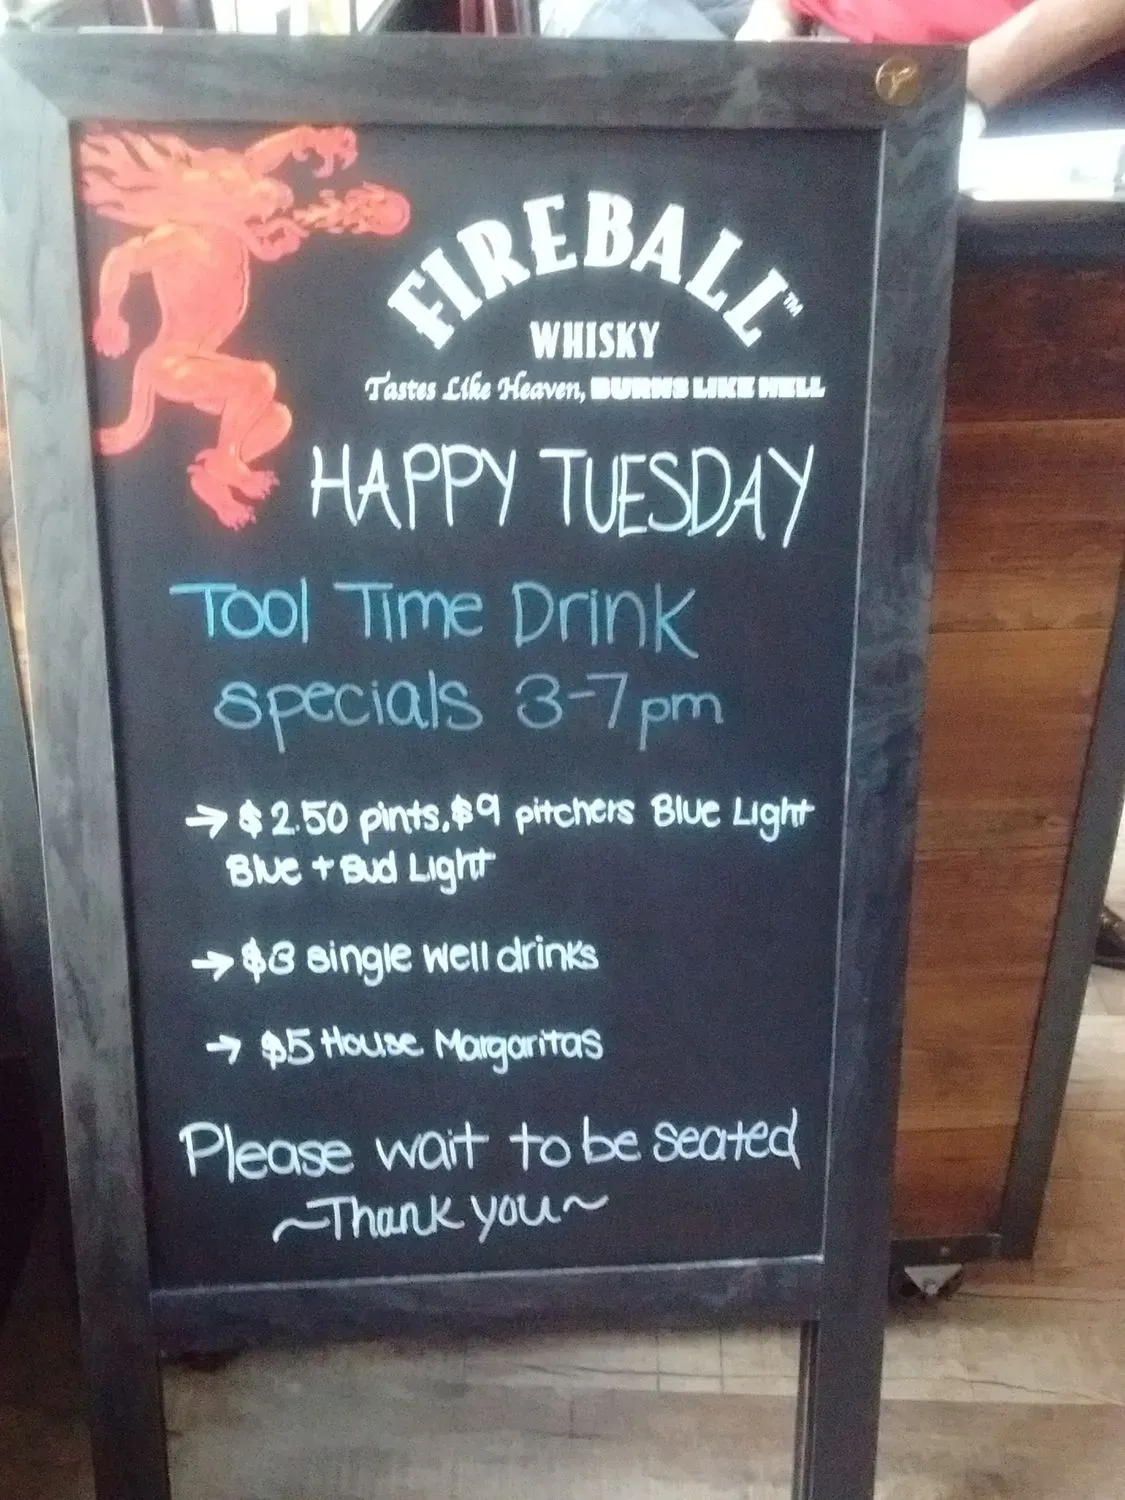 FIREBALL™
WHISKY
Tastes Like Heaven, BURNS LIKE HELL
HAPPY TUESDAY
Tool Time Drink
specials 3-7pm
→ $2.50 pints, $9 pitchers Blue Light
Blue + Bud Light
→ $3 single well drinks
→ $5 House Margaritas
Please wait to be seated
~Thank you~